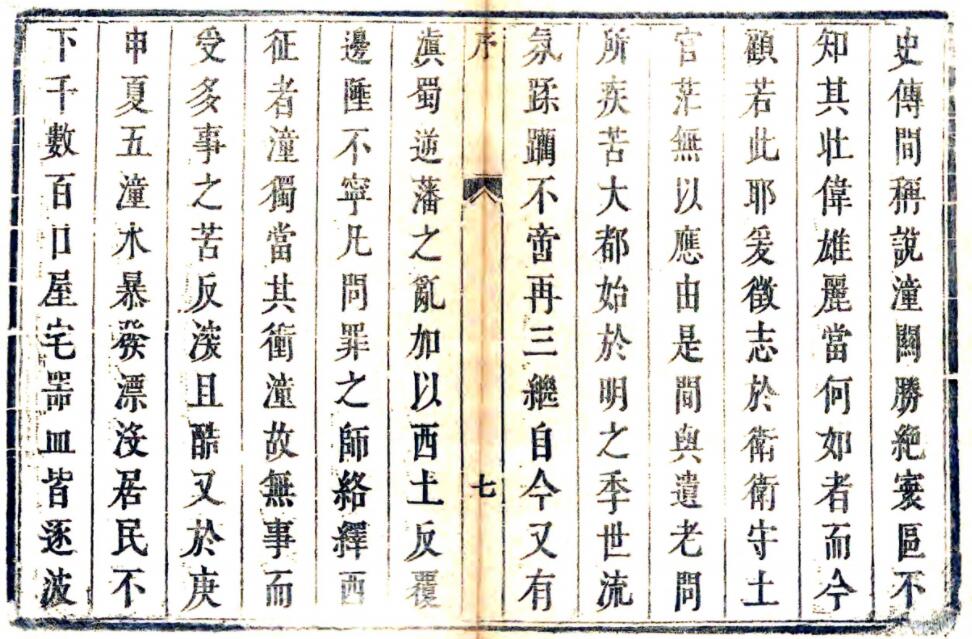 史傳間稱說潼關勝絶寰區不
知其壯偉雄麗當何如者而今
顧若此耶爰徵志於衛衛守土
官茫無以應由是間與遺老問
所疾苦大都始於明之季世流
氛蹂躪不啻再三繼自今又有
序
七
滇蜀逆藩之亂加以西土反覆
邊陲不寧凡問罪之師絡繹西
征者潼獨當其衝潼故無事而
受多事之苦反深且酷又於庚
申夏五潼水暴發漂沒居民不
下千數百口屋宅器皿皆逐波